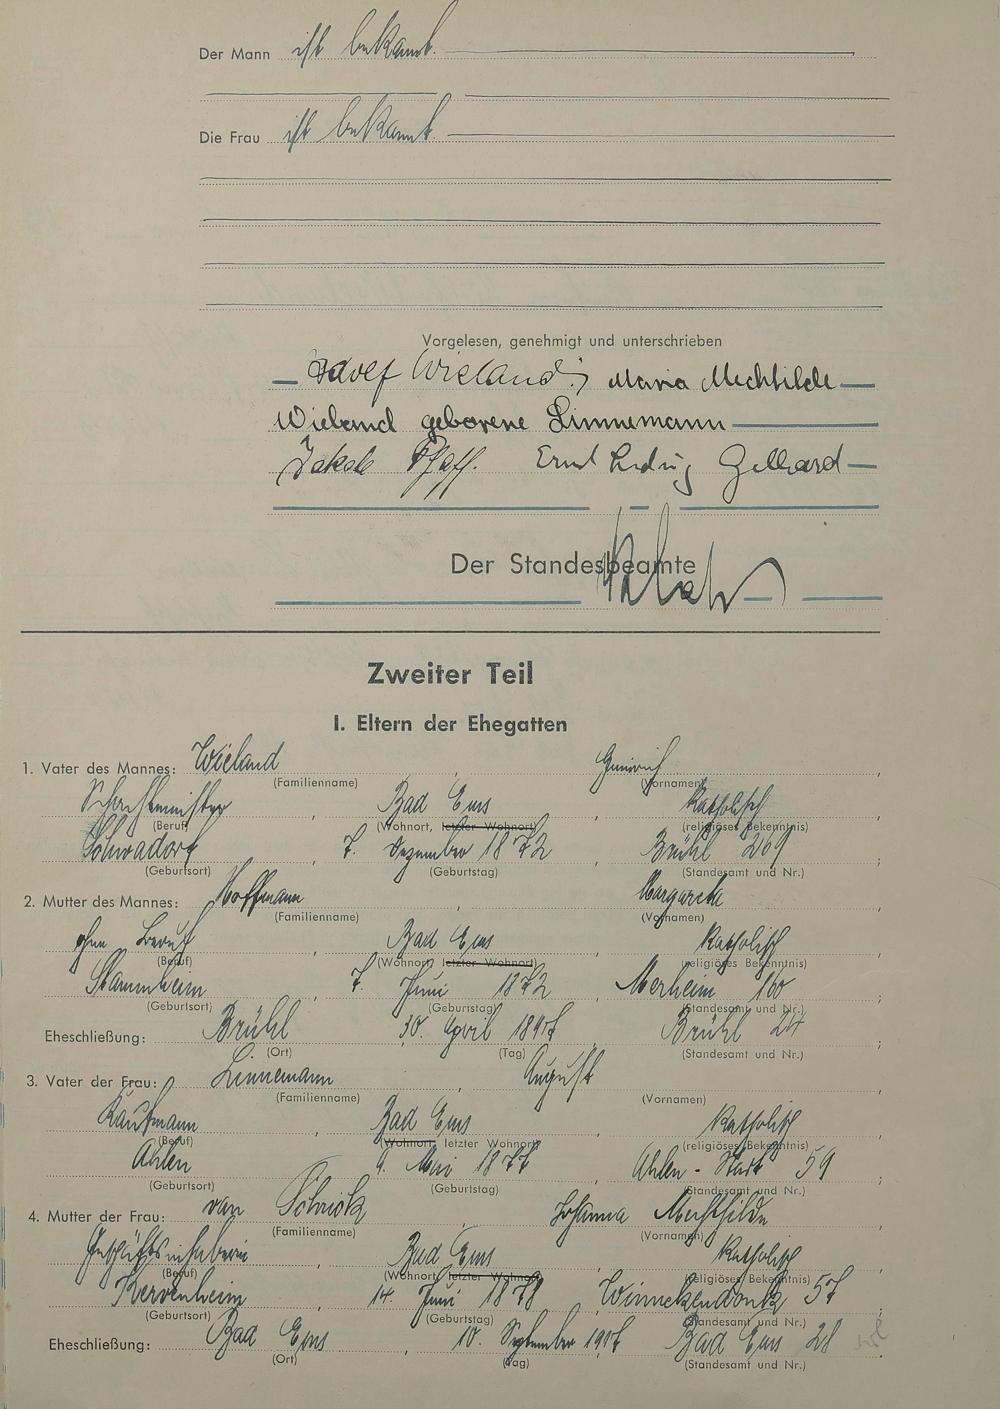 Der Mann ist bekannt.
Die Frau ist bekannt.
Vorgelesen, genehmigt und unterschrieben
Adolf Wieland; Maria Mechtilde
Wieland geborene Linnemann
Jakob Pfaff. Ernst Ludwig Gelhard
Der Standesbeamte
Zweiter Teil
I. Eltern der Ehegatten
1. Vater des Mannes: Wieland , Heinrich ,
(Familienname) (Vornamen)
Schachtmeister , Bad Ems , katholisch
(Beruf) (Wohnort, letzter Wohnort) (religiöses Bekenntnis)
Schwadorf , 7. Dezember 1872 , Brühl 269 ;
(Geburtsort) (Geburtstag) (Standesamt und Nr.)
2. Mutter des Mannes: Hoffmann , Margareta ,
(Familienname) (Vornamen)
ohne Beruf , Bad Ems , katholisch
(Beruf) (Wohnort, letzter Wohnort) (religiöses Bekenntnis)
Stammheim , 7. Juni 1872 , Merheim 160 ;
(Geburtsort) (Geburtstag) (Standesamt und Nr.)
Eheschließung: Brühl , 30. April 1897 , Brühl 24 ;
(Ort) (Tag) (Standesamt und Nr.)
3. Vater der Frau: Linnemann , August ,
(Familienname) (Vornamen)
Kaufmann , Bad Ems , katholisch
(Beruf) (Wohnort, letzter Wohnort) (religiöses Bekenntnis)
Ahlen , 9. Mai 1877 , Ahlen - Stadt 59 ;
(Geburtsort) (Geburtstag) (Standesamt und Nr.)
4. Mutter der Frau: van Schrick , Johanna Mechthilde ,
(Familienname) (Vornamen)
Geschäftsinhaberin , Bad Ems , katholisch
(Beruf) (Wohnort, letzter Wohnort) (religiöses Bekenntnis)
Kervenheim , 14. Juni 1878 , Winnekendonk 57 ;
(Geburtsort) (Geburtstag) (Standesamt und Nr.)
Eheschließung: Bad Ems , 10. September 1907 , Bad Ems 28
(Ort) (Tag) (Standesamt und Nr.)